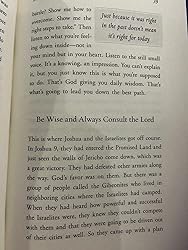 berly? Show me how to
overcome. Show me the
right steps to take." Then
listen to what you're feel-
ing down inside—not in
your mind but in your heart. Listen to the still small
voice. It's a knowing, an impression. You can't explain
it, but you just know this is what you're supposed
to do. That's God giving you daily wisdom. That's
what's going to lead you down the best path.
Just because it was right
in the past doesn't mean
it's right for today.
Be Wise and Always Consult the Lord
This is where Joshua and the Israelites got off course.
In Joshua 9, they had entered the Promised Land and
just seen the walls of Jericho come down, which was
a great victory. They had defeated other armies along
the way. God's favor was on them. But there was a
group of people called the Gibeonites who lived in
neighboring cities where the Israelites had camped.
When they had heard how powerful and successful
the Israelites were, they knew they couldn't compete
with them and that they were going to be driven out
of their cities as well. So they came up with a plan